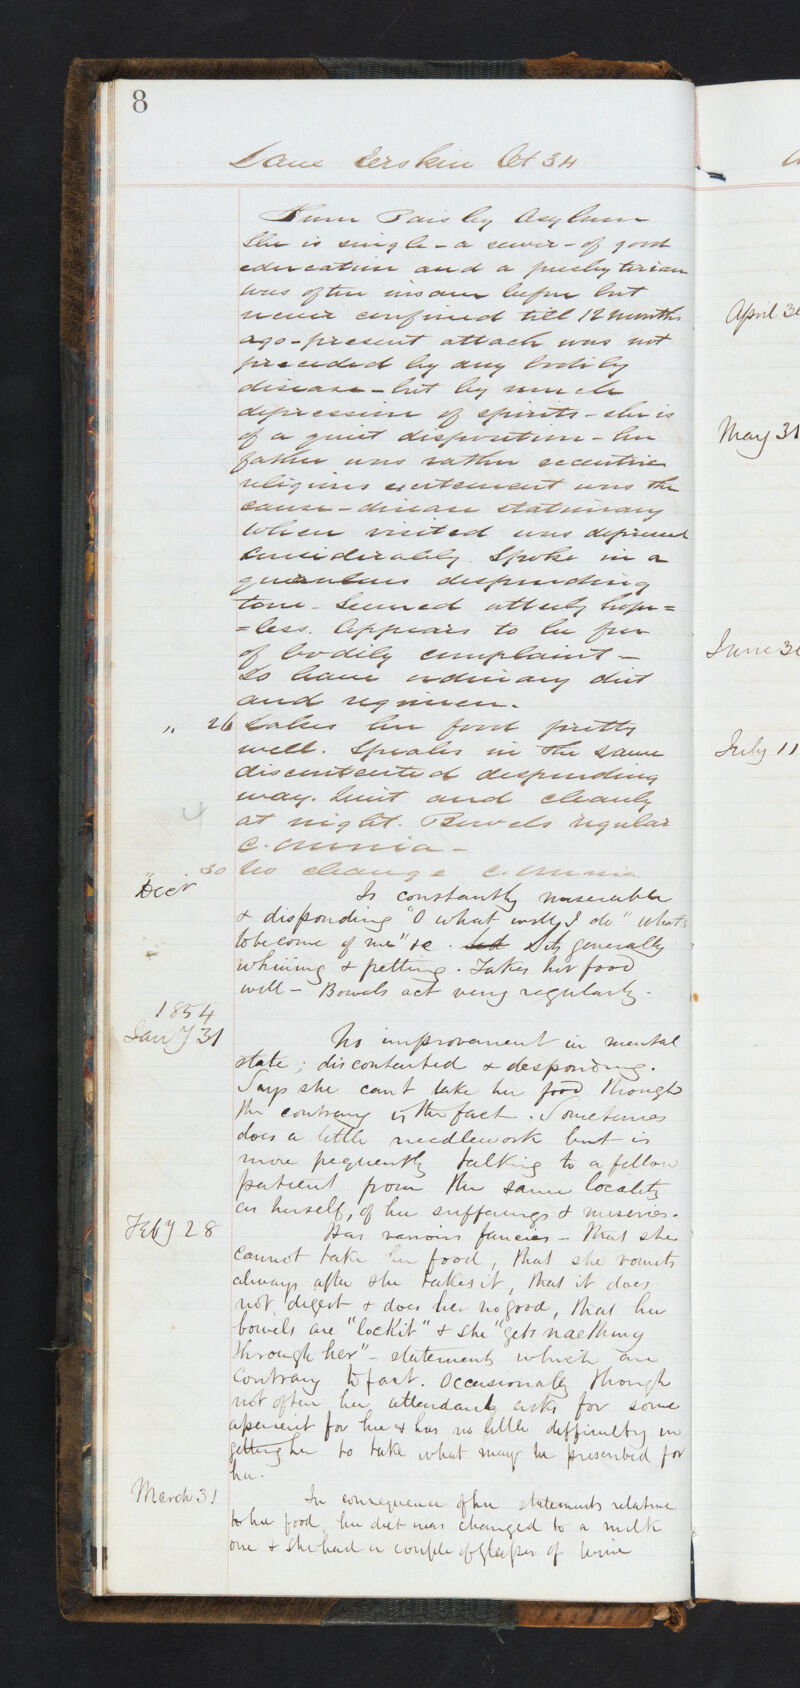 8
Jane Erskin Aet 34
From Paisley Asylum
She is single - a sewer - of good
education and a presbyterian
was often insane before but
never confined till 12 months
ago - present attack was not
preceded by any bodily
disease - but by much
depression of spirits - she is
of a quiet disposition - her
father was rather eccentric
religious excitement was the
cause - disease stationary
When visited was depressed
considerably. Spoke in a
querulous desponding
tone - Seemed utterly hope=
=less. Appears to be free
of bodily complaint -
To have ordinary diet
and regimen.
" 26 Takes her food pretty
well. Speaks in the same
discontented desponding
way. Quiet and cleanly
at night. Bowels regular
C. omnia -
" 30 No change C. omnia
Decr Is constantly miserable
& disponding "O what will I do" "whats
to become of me" &c. Sits generally
whining & petting. Takes her food
well - Bowels act very regularly -
1854
Jany 31 No improvement in mental
state; discontented & desponding.
Says she cant take her food though
the contrary is the fact. Sometimes
does a little needlework but is
more frequently talking to a fellow
patient from the same locality
as herself, of her sufferings & miseries.
Feby 28 Has various fancies - that she
cannot take her food, that she vomits
always after she takes it, that it does
not digest & does her no good, that her
bowels are "lockit" & she "gets naething
through her" - statements which are
contrary to fact. Occasionally though
not often her attendant asks for some
aperient for her & has no little difficulty in
getting her to take what may be prescribed for
her.
March 31 In consequence of her statements relative
to her food, her diet was changed to a milk
one & she had a couple of glasses of wine
April 30
May 31
June 30
July 11